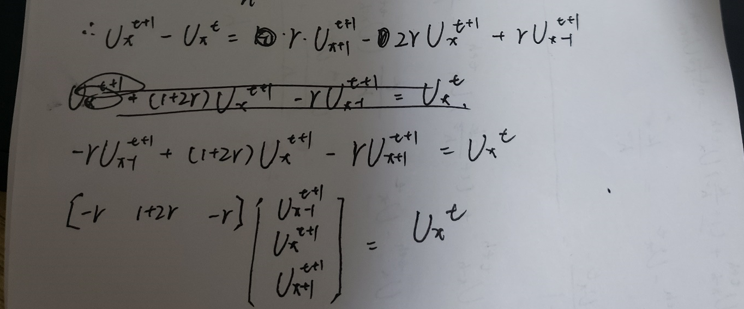 ∴ U_x^{t+1} - U_x^t = r · U_{x+1}^{t+1} - 2r U_x^{t+1} + r U_{x-1}^{t+1}
+ (1+2r) U_x^{t+1} - r U_{x-1}^{t+1} = U_x^t.
-r U_{x-1}^{t+1} + (1+2r) U_x^{t+1} - r U_{x+1}^{t+1} = U_x^t
[-r 1+2r -r] [U_{x-1}^{t+1} U_x^{t+1} U_{x+1}^{t+1}] = U_x^t